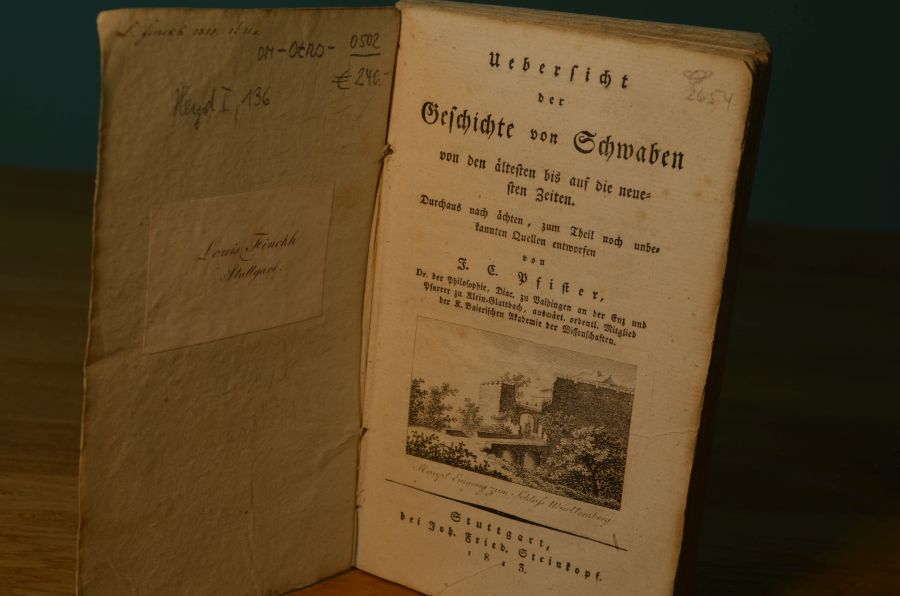 L. Finckh
DM-OERO-
0502
€ 240.-
Heyd I, 136
Louis Finckh
Stuttgart.
2654
Uebersicht
der
Geschichte von Schwaben
von den ältesten bis auf die neue-
sten Zeiten.
Durchaus nach ächten, zum Theil noch unbe-
kannten Quellen entworfen
von
J. C. Pfister,
Dr. der Philosophie, Diac. zu Vaihingen an der Enz und
Pfarrer zu Klein-Glattbach, auswärt. ordentl. Mitglied
der K. Baierischen Akademie der Wissenschaften.
Haupt Eingang zum Schloß Württemberg
Stuttgart,
bei Joh. Fried. Steinkopf.